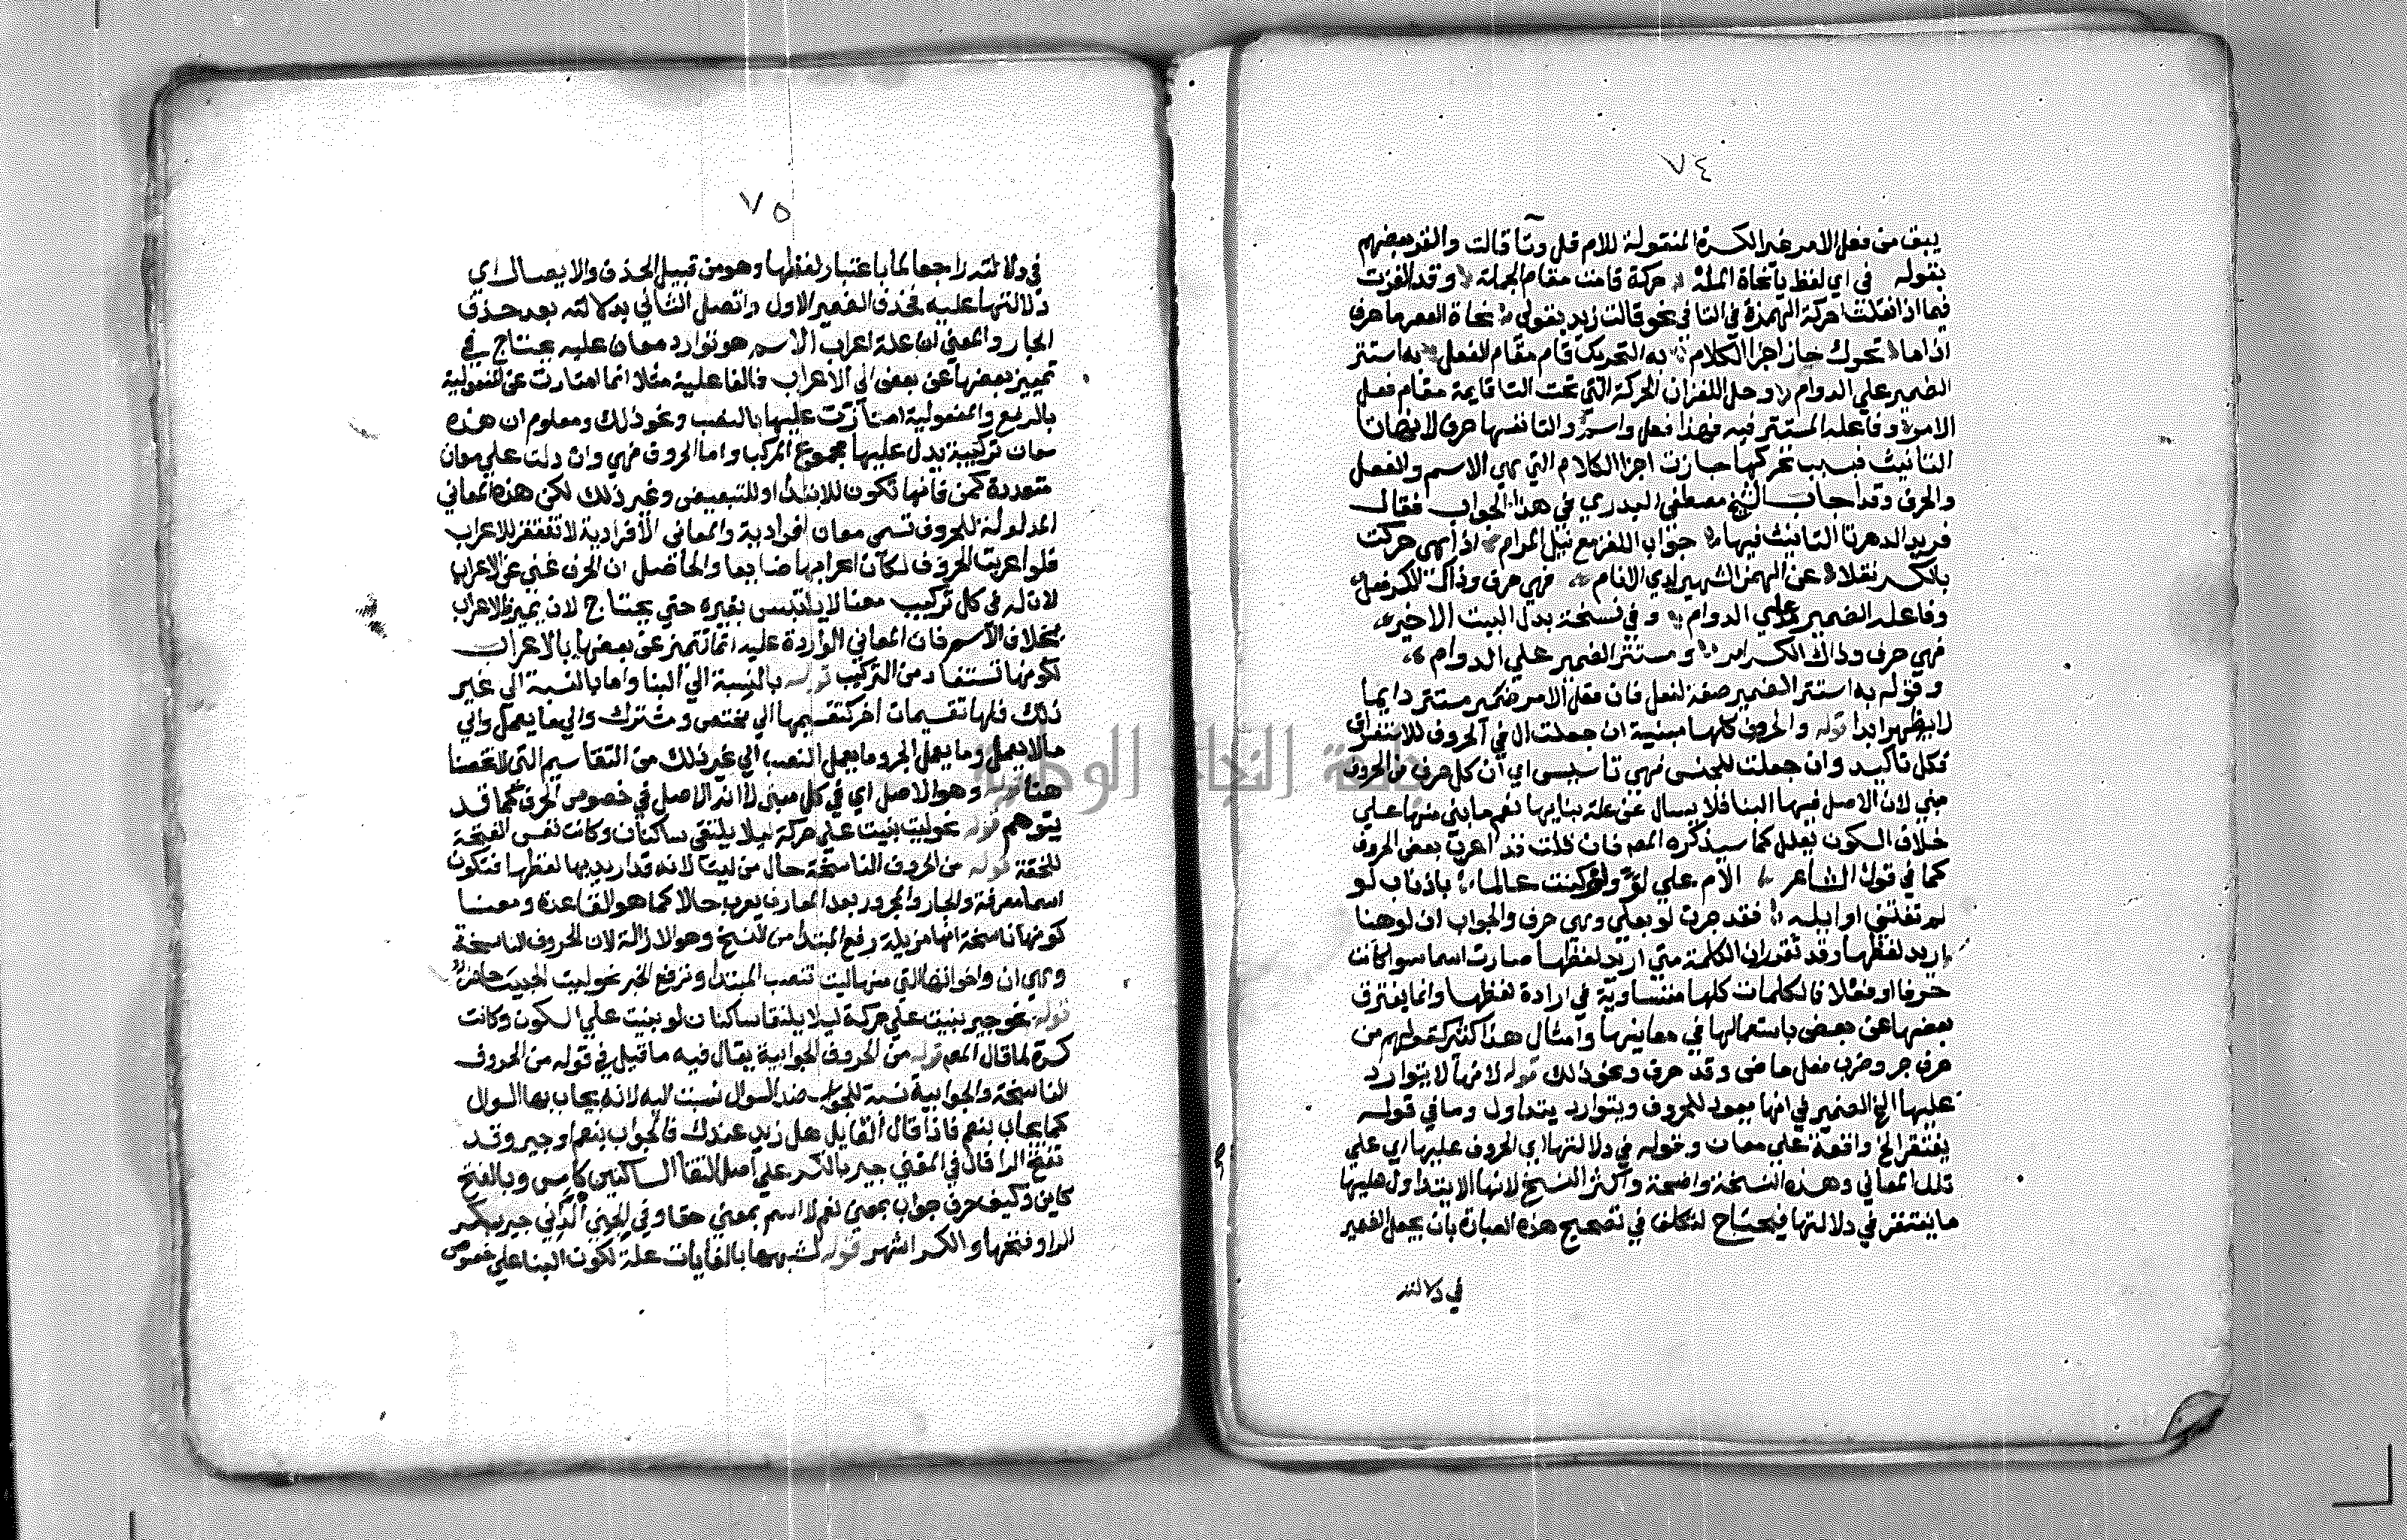 ٧٤
يبق من فعل الامر غير الكسرة المنقولة للام قل وتا قالت والغز بعضهم
بقوله في اي لفظ يا نحاة الملة حركة قامت مقام الجملة وقد الغزت
فيما اذا نقلت حركة الهمزة في التا في نحو قالت زيد بقولي نحاة العصر ما حرف
اذا ما تحرك حاز اجزا الكلام به التحريك قام مقام لفعل به استتر
الضمير علي الدوام وحل اللغز ان الحركة التي تحت التا قايمة مقام فعل
الامر وفاعله المستتر فيه فهذا فعل واسم والتا نفسها حرف لانها تا
التانيث فبسبب تحركها حازت اجزا الكلام التي هي الاسم والفعل
والحرف وقد اجاب الشيخ مصطفي البدري في هذا الجواب فقال
فريد الدهر تا التانيث فيها جواب اللغز مع نيل المرام اذا هي حركت
بالكسر نقلا عن الهمز الشهير لدي الانام فهي حرف وذاك الكسر فعل
وفاعله الضمير علي الدوام وفي نسخة بدل البيت الاخير
فهي حرف وذاك الكسر امر ومستتر الضمير علي الدوام
وقوله به استتر الضمير صفة لفعل فان فعل الامر ضمير مستتر دايما
لا يظهر ابدا قوله والحروف كلها مبنية ان جعلت ال في الحروف للاستغراق
فكل تاكيد وان جعلت للجنس فهي تاسيس اي ان كل حرف من الحروف
مبني لان الاصل فيها البنا فلا يسال عن علة بنايها نعم ما بني منها علي
خلاف السكون يعلل كما سيذكره المص فان قلت قد اعرب بعض الحروف
كما في قول الشاعر الام علي لو ولو كنت عالما باذناب لو
لم تفتني اوايله فقد جرت لو بعلي وهي حرف والجواب ان لو هنا
اريد لفظها وقد تقرر ان الكلمة متي اريد لفظها صارت اسما سوا كانت
حرفا او فعلا فالكلمات كلها متساوية في ارادة لفظها وانما يفترق
بعضها عن بعض باستعمالها في معاينها وامثال هذا كثير كقولهم من
حرف جر وضرب فعل ماضي وقد حرف ونحو ذلك قوله لانها لا يتوارد
عليها الخ الضمير في انها يعود للحروف ويتوارد يتداول وما في قوله
يفتقر الخ واقعة علي معان وقوله في دلالتها اي الحروف عليها اي علي
تلك المعاني وهذه النسخة واضحة واكثر النسخ لانها لا يتداول عليها
ما تفتقر في دلالتها فيحتاج لتكلف في تصحيح هذه العبارة بان يجعل الضمير
في دلالته
٧٥
في دلالته راجعا لما باعتبار لفظها وهو من قبيل الحذف والايصال اي
دلالتها عليه فحذف الضمير الاول واتصل الثاني بدلالته بعد حذف
الجار والمعني ان علة اعراب الاسم هو توارد معان عليه يحتاج في
تمييز بعضها عن بعض الي الاعراب فالفاعلية مثلا انما امتازت عن المفعولية
بالرفع والمفعولية امتازت عليها بالنصب ونحو ذلك ومعلوم ان هذه
معان تركيبية يدل عليها مجموع المركب واما الحروف فهي وان دلت علي معان
متعددة كمن فانها تكون للابتدا وللتبعيض وغير ذلك لكن هذه المعاني
المدلولة للحروف تسمي معان افرادية والمعاني الافرادية لا تفتقر للاعراب
فلو اعربت الحروف لكان اعرابها ضايعا والحاصل ان الحرف غني عن الاعراب
لان له في كل تركيب معنا لا يلتبس بغيره حتي يحتاج لان يميز بالاعراب
بخلاف الاسم فان المعاني الواردة عليه انما تتميز عن بعضها بالاعراب
لكونها تستفاد من التركيب قوله بالنسبة الي البنا واما بالنسبة الي غير
ذلك فلها تقسيمات اخر كتقسيمها الي مختص ومشترك والي ما يعمل والي
ما لا يعمل وما يعمل الجر وما يعمل النصب الي غير ذلك من التقاسيم التي لا تخصنا
هنا قوله وهو الاصل اي في كل مبني لا انه الاصل في خصوص الحرف كما قد
يتوهم قوله نحو ليت بنيت علي حركة ليلا يلتقي ساكنان وكانت نفس الفتحة
للخفة قوله من الحروف الناسخة حال من ليت لانه قد اريد بها لفظها فتكون
اسما معرفة والجار والمجرور بعد المعارف يعرب حالا كما هو القاعدة ومعنا
كونها ناسخة انها مزيلة رفع المبتدا من النسخ وهو الازالة لان الحروف الناسخة
وهي ان واخواتها التي منها ليت تنصب المبتدا وترفع الخبر نحو ليت الحبيب حاضر
قوله نحو جير بنيت علي حركة ليلا يلتقا ساكنان لو بنيت علي السكون وكانت
كسرة لما قال المص قوله من الحروف الجوابية يقال فيه ما قيل في قوله من الحروف
الناسخة والجوابية نسبة للجواب ضد السوال نسبت اليه لانه يجاب بها السوال
كما يجاب بنعم فاذا قال القايل هل زيد عندك فالجواب بنعم او جير وقد
تفتح الرا قال في المغني جير بالكسر علي اصل التقا الساكنين كامس وبالفتح
كاين وكيف حرف جواب بمعني نعم لا اسم بمعني حقا وفي الجني الداني جير بكسر
الرا وفتحها والكسر اشهر قوله لشبهها بالغايات علة لكون البنا علي خصوص